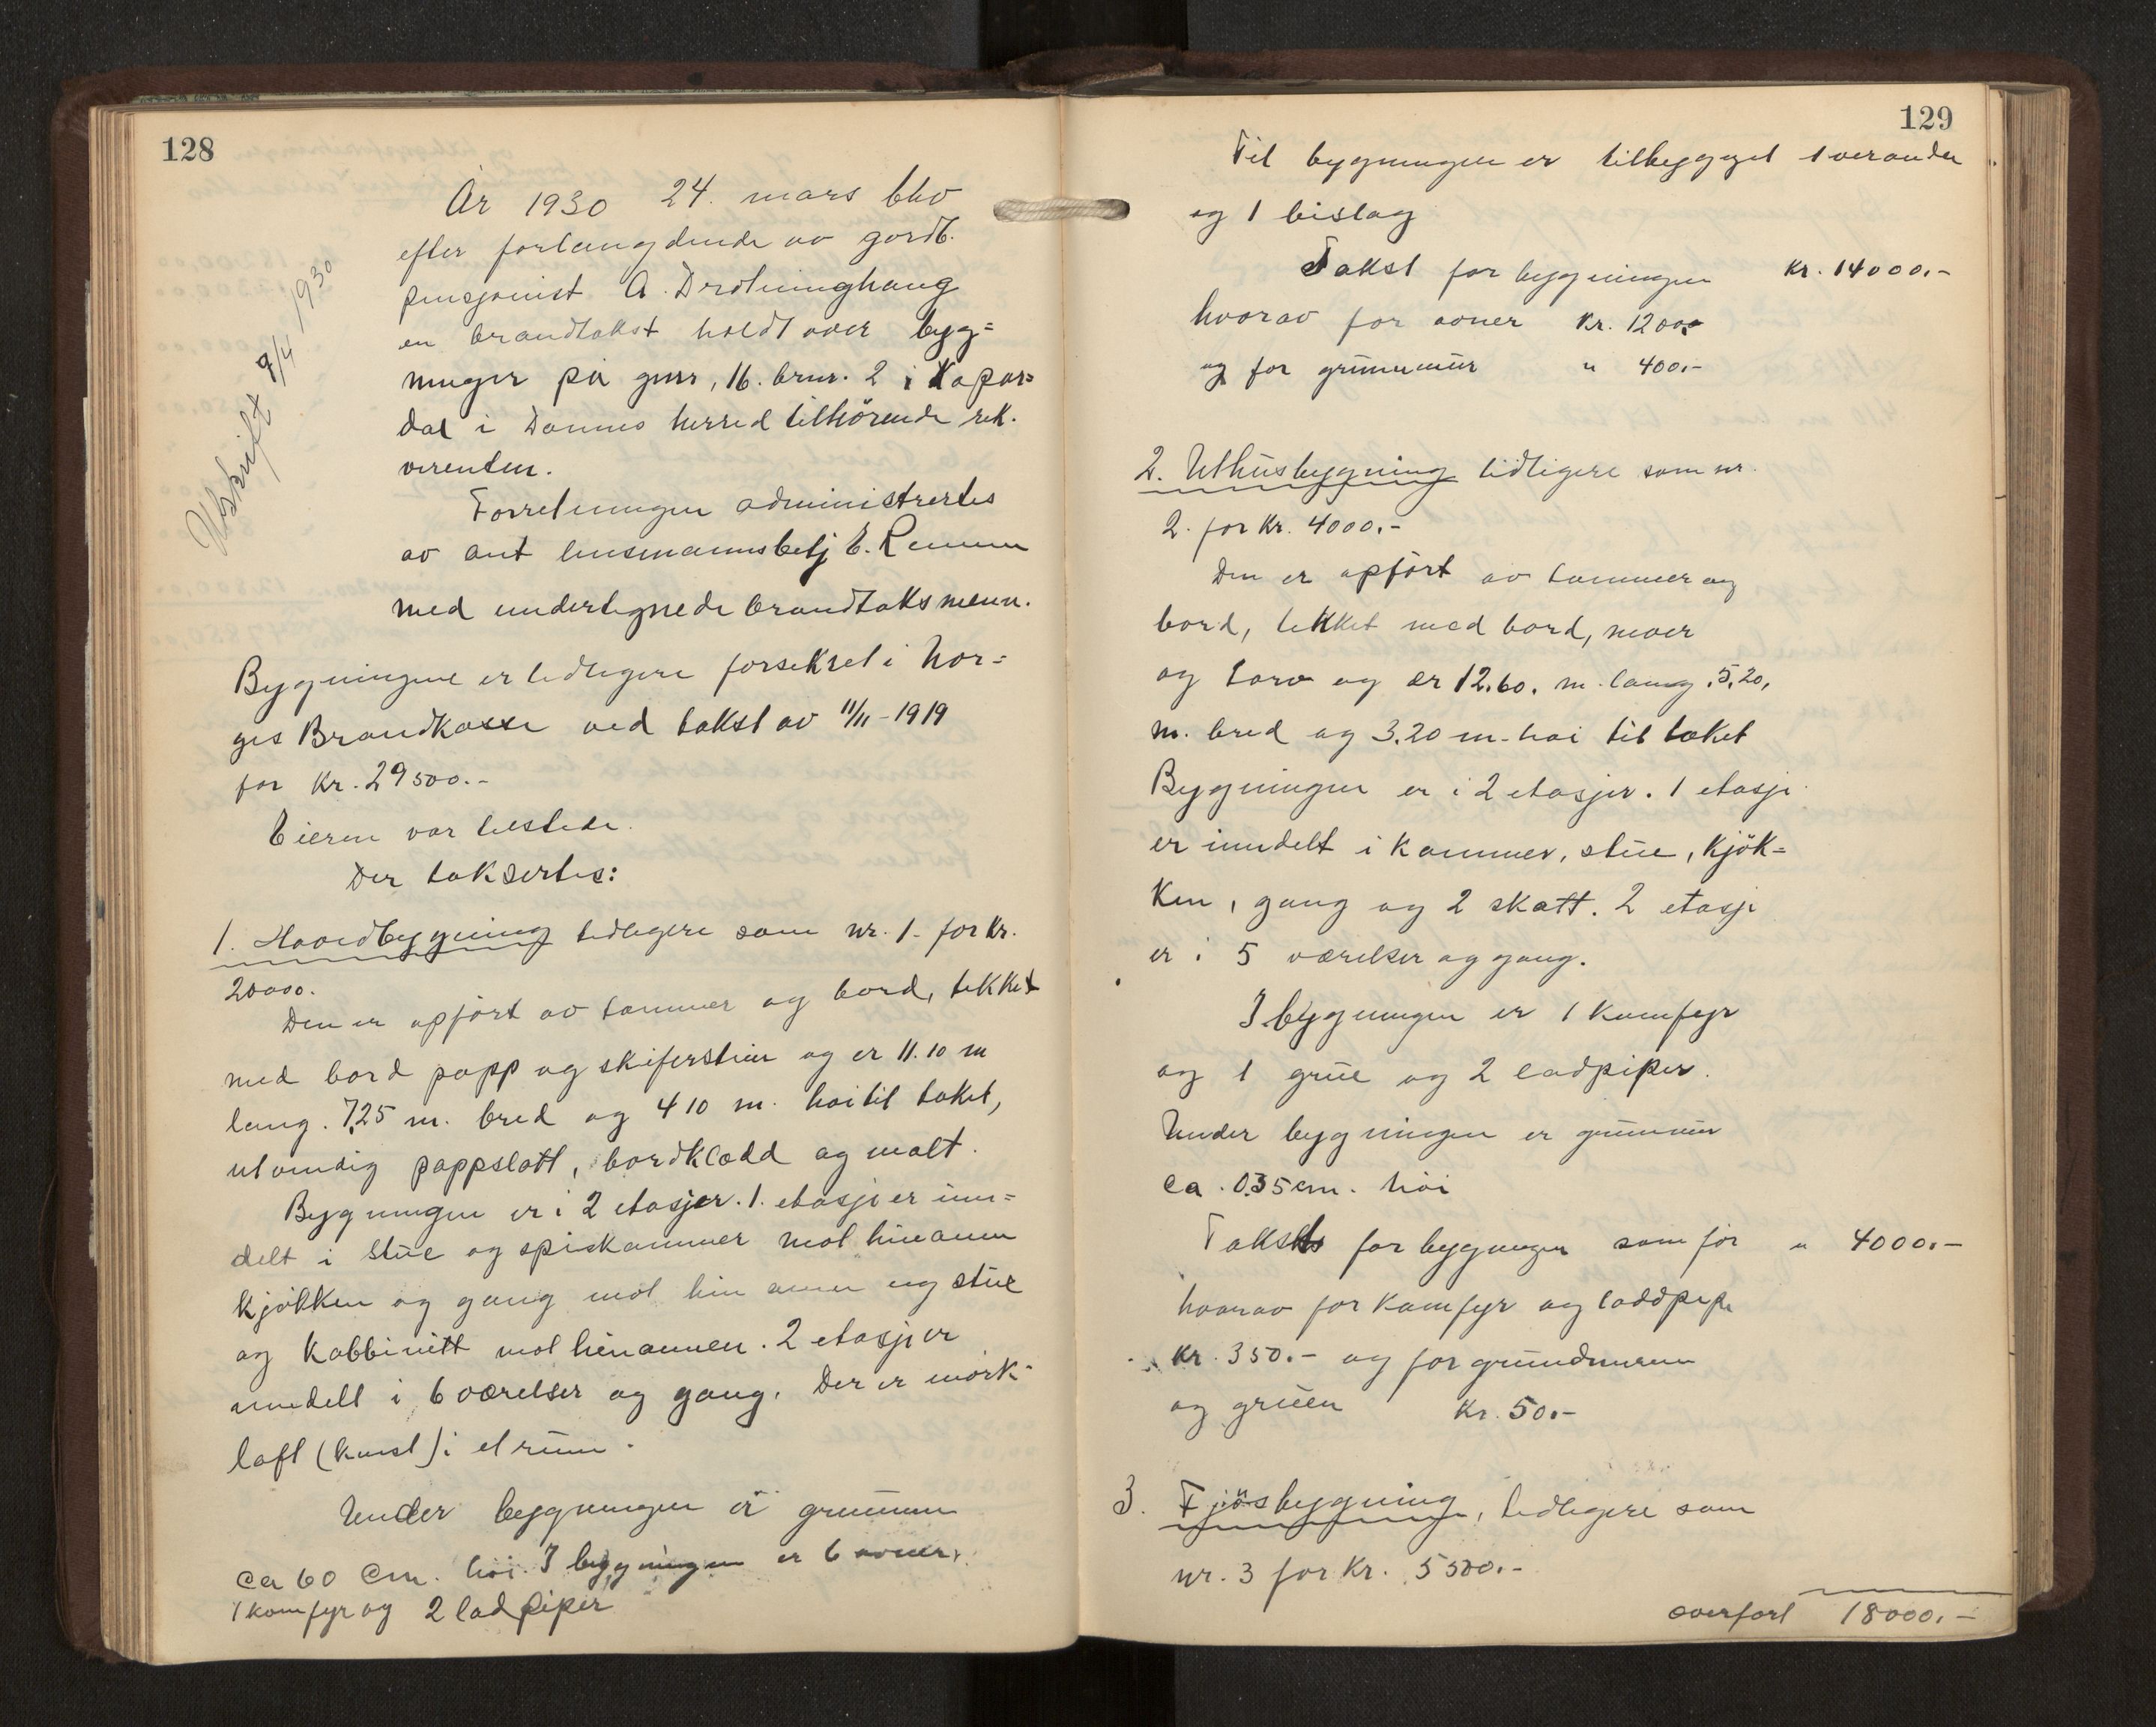 128
År 1930 24. mars blev
efter forlangdende av gårdb.
pensjonist A. Drotninghaug
en brandtakst holdt over byg=
ninger på gnr, 16. brnr. 2 i
dal i herred tilhörende rek.
virenten.
Utskrift 9/4 1930
Forretningen administrertes
av ant lensmannsbetj E.
med undertegnede brandtaksmenn.
Bygningene er tidligere forsikret i Nor=
ges Brandkasse ved takst av 11/11-1919
for kr. 29500.-
Eieren var tilstede.
Der taksertes:
1. Hovedbygning tidligere som nr. 1- for kr.
20000.
Den er opfört av tømmer og bord, tekket
med bord papp og skiferstein og er 11.10 m
lang. 7,25 m. bred og 410 m. høi til taket,
utvendig pappslått, bordklædd og malt.
Bygningen er i 2 etasjer. 1. etasje er inn=
delt i stue og spiskammer mot hinannen
kjökken og gang mot hin annen og stue
og kabbinett mot hinannen. 2 etasje er
inndelt i 6 værelser og gang. Der er mörk-
loft (kvist) i et rum.
Under bygningen er grunnmur
ca 60 cm. höi. I bygningen er 6 ovner,
1 komfyr og 2 lad piper
129
Til bygningen er tilbygget 1 veranda
og 1 bislag
Takst for bygningen kr. 14000.-
hvorav for ovner kr. 1200,-
og for grunnmur " 400.-
2. Uthusbygning tidligere som nr.
2. for kr. 4000.-
Den er opfört av tømmer og
bord, tekket med bord, never
og torv og er 12.60. m. lang. 5.20,
m. bred og 3.20 m. høi til taket
Bygningen er i 2 etasjer. 1 etasje
er inndelt i kammer, stue, kjök=
ken, gang og 2 skatt. 2 etasje
er i 5 værelser og gang.
I bygningen er 1 komfyr
og 1 grue og 2 ladpiper.
Under bygningen er grunnmur
ca. 0.35 cm. höi
Takst for bygningen som för " 4000.-
hvorav for komfyr og laddpipe
kr. 350.- og for grundmuren
og gruen kr. 50.-
3. Fjösbygning, tidligere som
nr. 3 for kr. 5500.-
overfört 18000.-